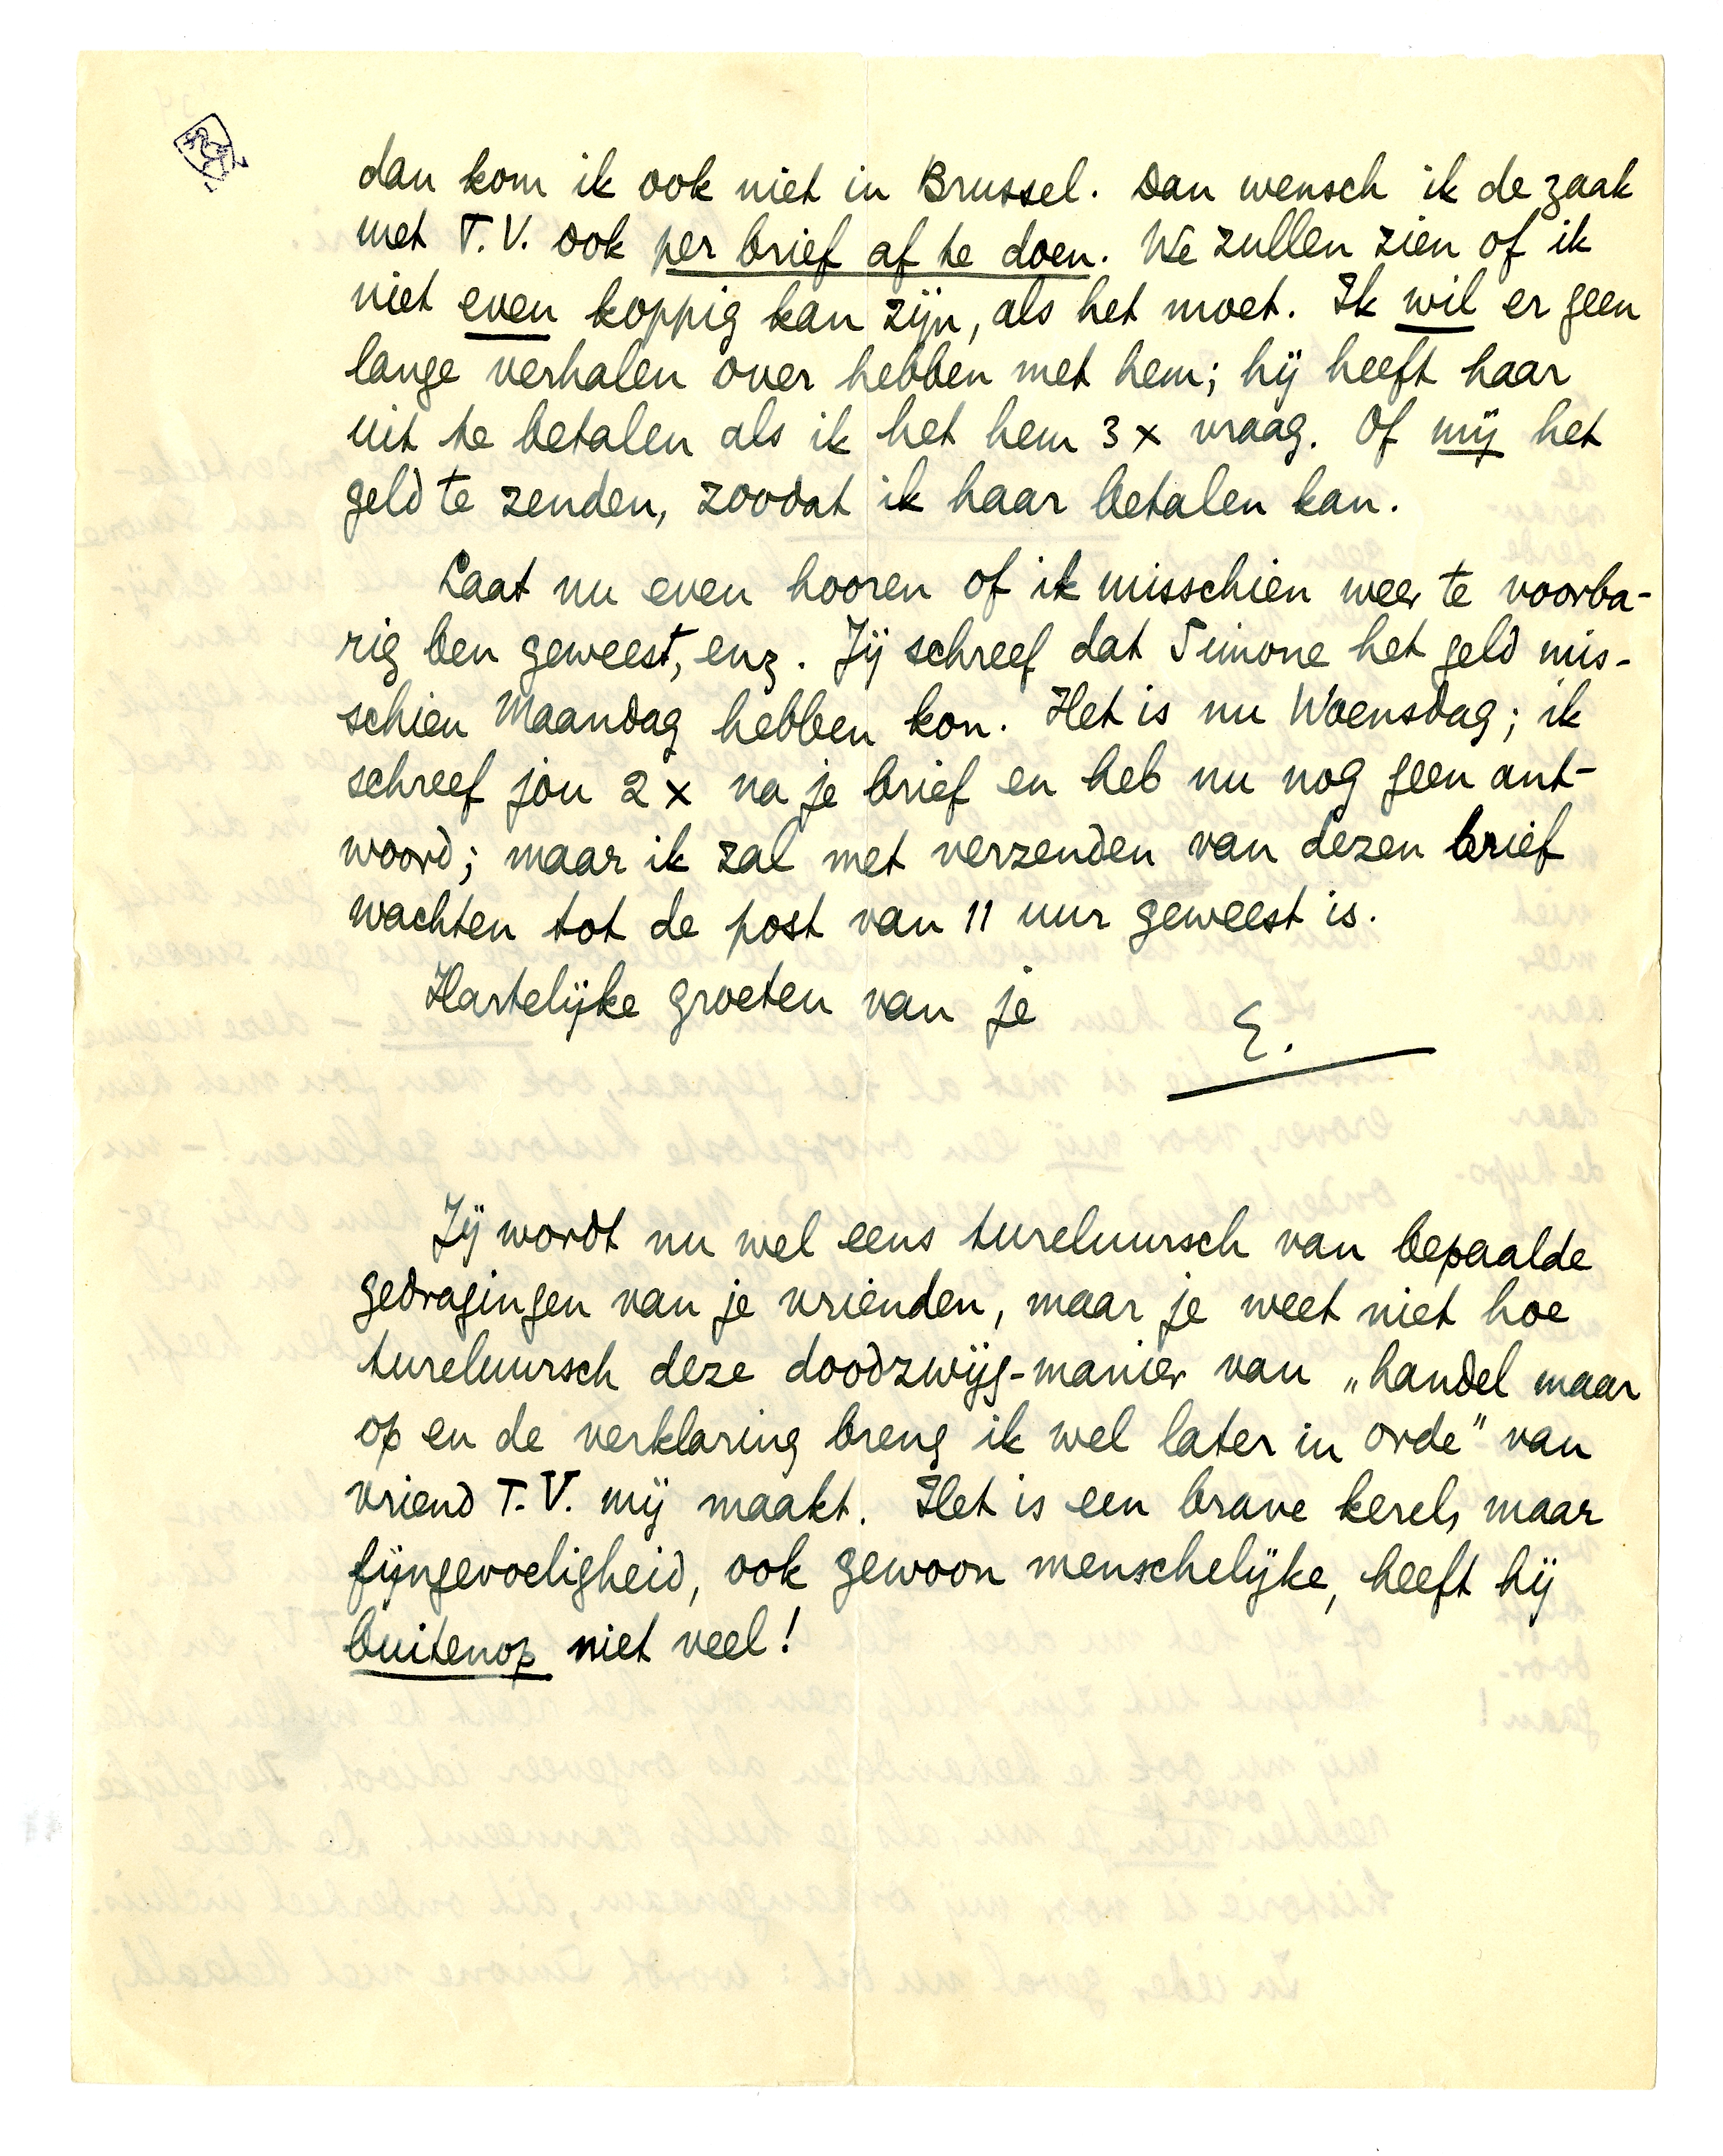 dan kom ik ook niet in Brussel. Dan wensch ik de zaak
met T.V. ook per brief af te doen. We zullen zien of ik
niet even koppig kan zijn, als het moet. Ik wil er geen
lange verhalen over hebben met hem; hij heeft haar
uit te betalen als ik het hem 3 x vraag. Of mij het
geld te zenden, zoodat ik haar betalen kan.
Laat nu even hooren of ik misschien weer te voorba-
rig ben geweest, enz. Jij schreef dat Simone het geld mis-
schien Maandag hebben kon. Het is nu Woensdag; ik
schreef jou 2 x na je brief en heb nu nog geen ant-
woord; maar ik zal met verzenden van dezen brief
wachten tot de post van 11 uur geweest is.
Hartelijke groeten van je
E.
Jij wordt nu wel eens tureluursch van bepaalde
gedragingen van je vrienden, maar je weet niet hoe
tureluursch deze doodzwijg-manier van „handel maar
op en de verklaring breng ik wel later in orde" van
vriend T.V. mij maakt. Het is een brave kerel, maar
fijngevoeligheid, ook gewoon menschelijke, heeft hij
buitenop niet veel!